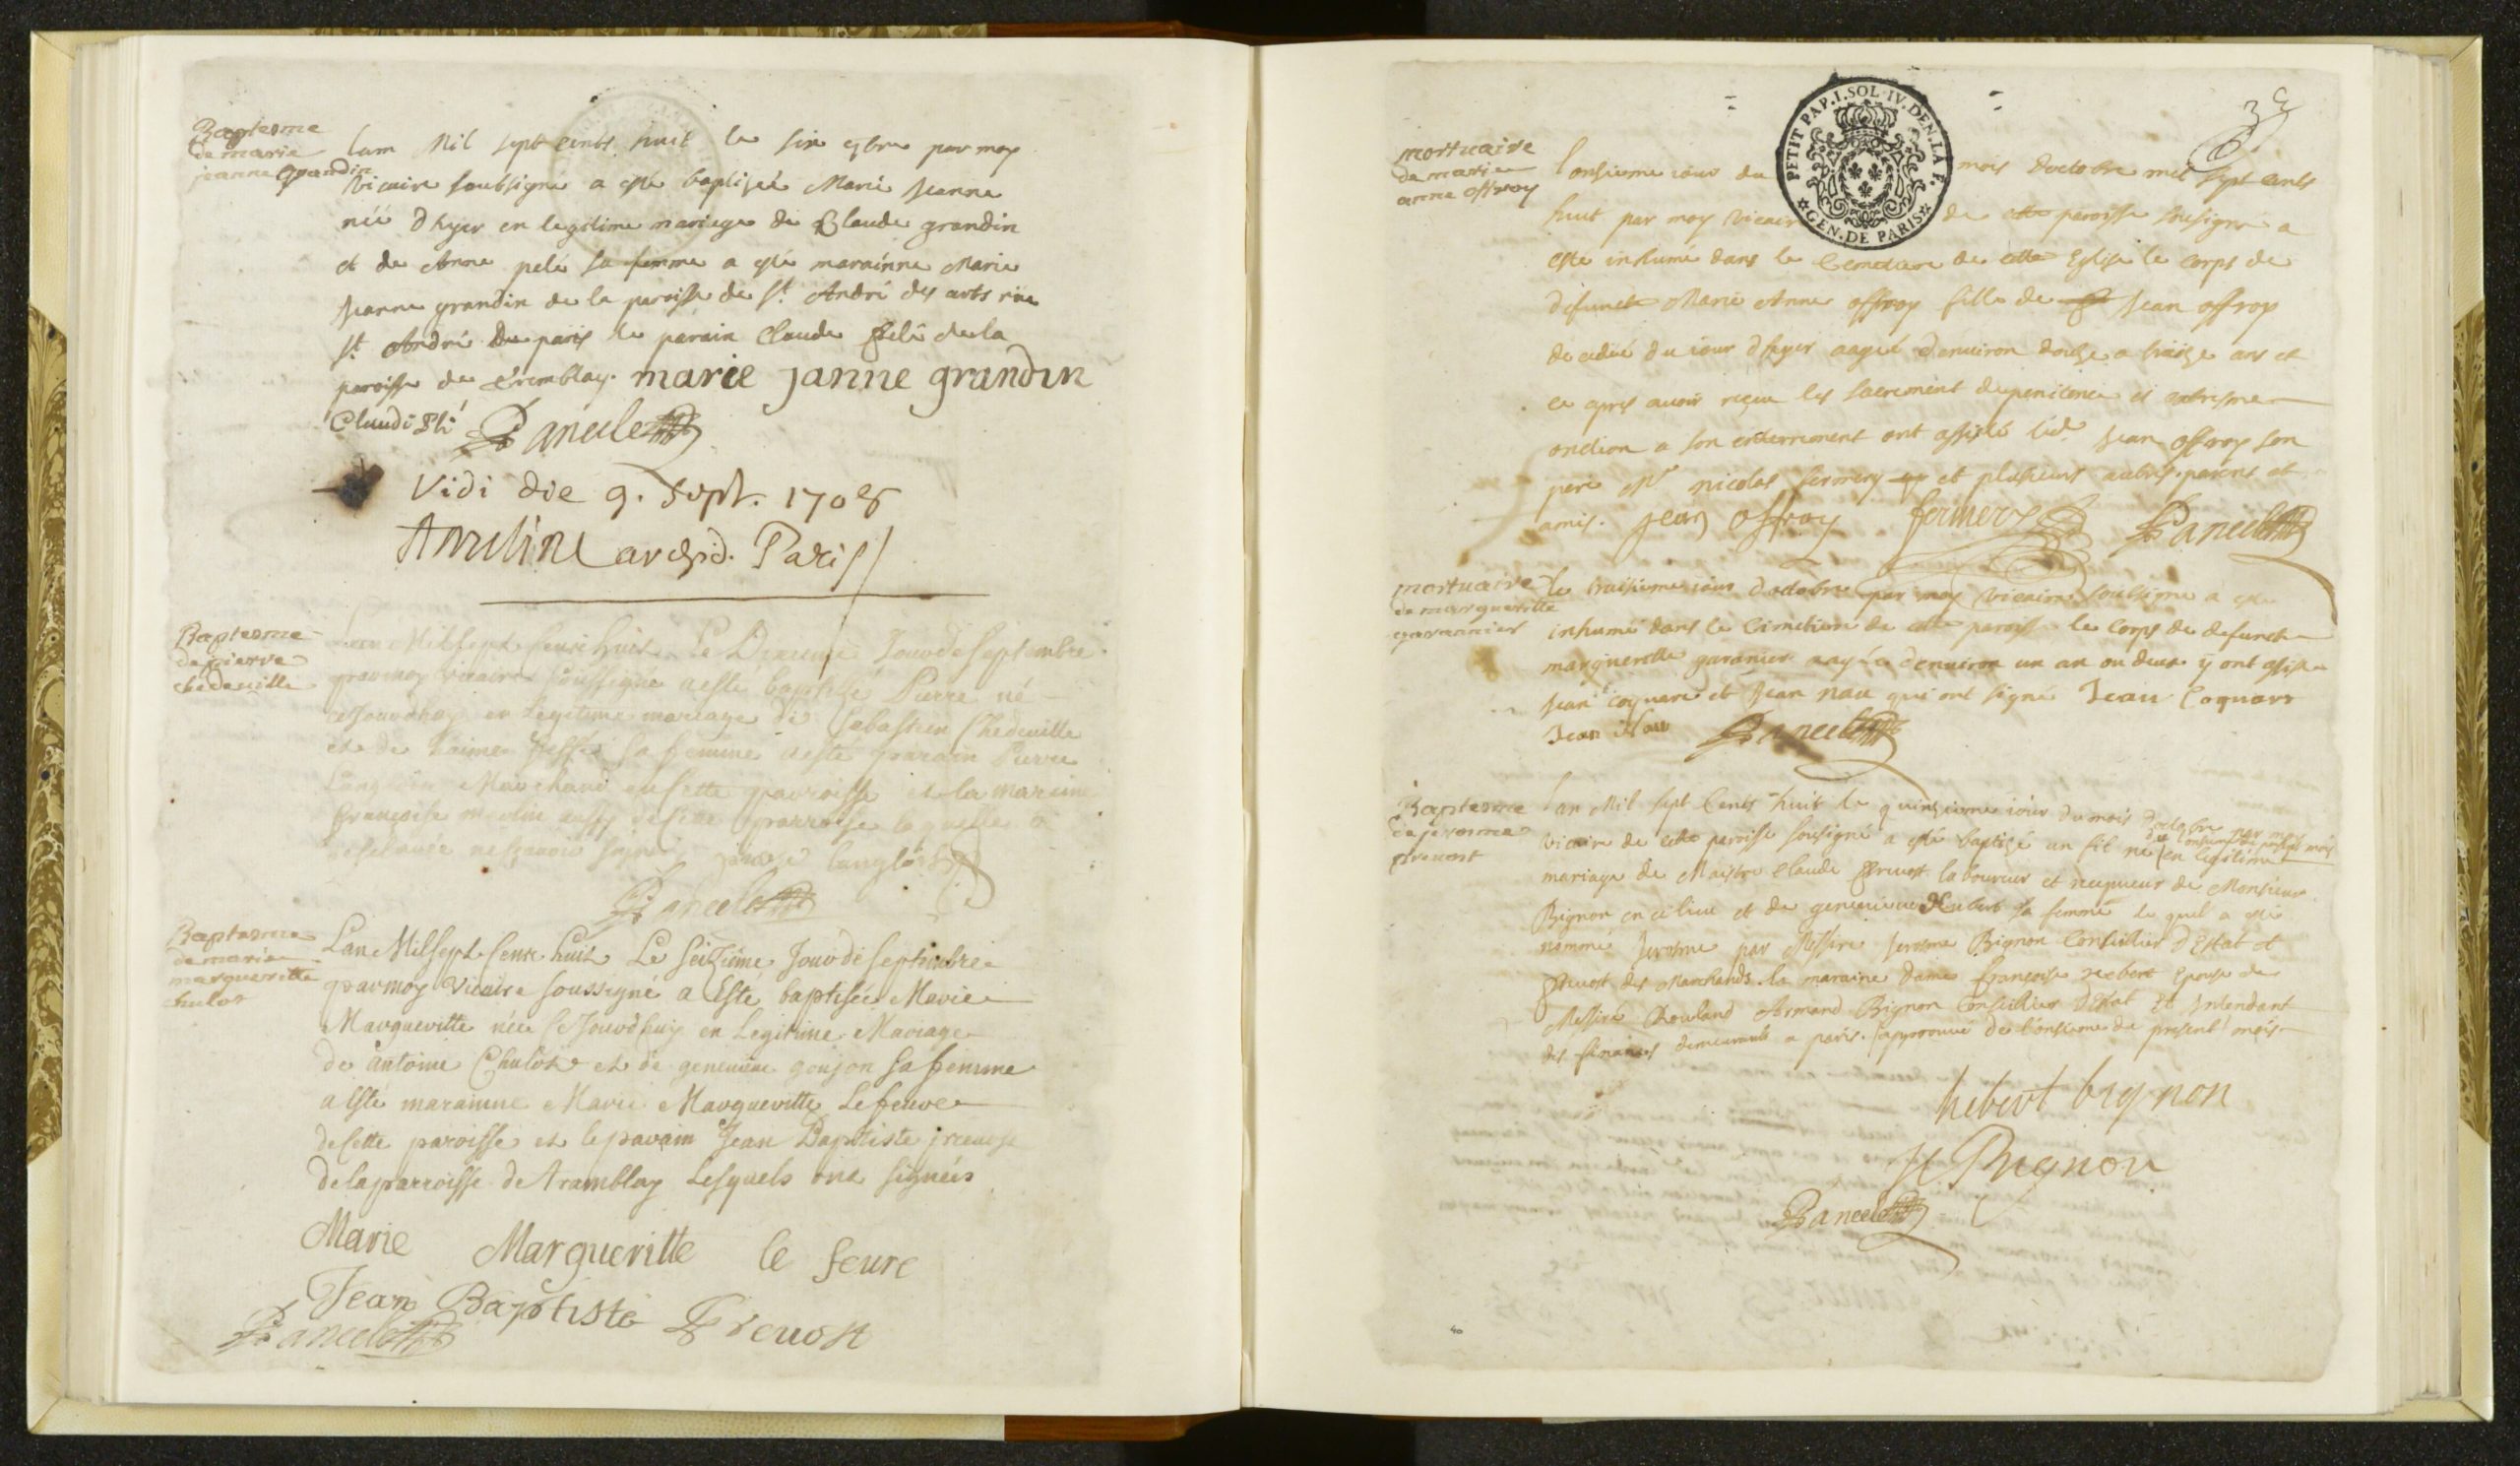 Baptesme
de marie
jeanne grandin
lan Mil sept cents huit le six 7bre par moy
vicaire soubsigné a esté baptisée Marie Jeanne
née d'hyer en legitime mariage de Claude grandin
et de Anne pelé sa femme a esté marainne Marie
Jeanne grandin de la paroisse de St André des arts rüe
St André De paris le parain Claude Pelé de la
paroisse de Tremblay. marie janne grandin
Claude Plé Pancele
Vidi die 9. Sept. 1708
Ameline archid. Paris
Baptesme
de pierre
chedeville
Lan Mil sept Cens huit Le Jour de Septembre
par moy vicaire soussigné a esté baptisé Pierre né
cejourdhuy en legitime mariage de Sebastien Chedeville
et de sa femme a esté parain Pierre
Langlois Marchand de cette parroisse et la maraine
Françoise aussy de cette parroisse laquelle a
declarée ne sçavoir signer langlois
Pancele
Baptesme
de marie
margueritte
chulot
Lan Mil sept Cens huit Le Seizieme Jour de Septembre
par moy Vicaire soussigné a Esté baptisée Marie
Margueritte née Cejourdhuy en Legitime Mariage
de antoine Chulot et de genevieve goujon sa femme
a Esté marainne Marie Margueritte Lefeuvre
de Cette paroisse et le parain Jean Baptiste prevost
de la parroisse de tramblay Lesquels ont signées
Marie Margueritte le feure
Jean Baptiste Preuost
Pancele
PETIT PAP. I. SOL. IV. DEN. LA F.
GEN. DE PARIS
39
mortuaire
de marie
anne offroy
l'onsieme iour du mois doctobre mil sept cents
huit par moy vicaire de cette paroisse sousigné a
esté inhumé dans le Cemetiere de cette Eglise le corps de
defuncte Marie Anne offroy fille de Jean offroy
decedée du iour d'hyer aagée d'environ douze a traize ans et
ce apres avoir reçeu les sacrement de penitence et extresme
onction a son enterrement ont assisté led. Jean offroy son
pere Mr nicolas fermery et plusieurs autres parens et
amis. jean offroy fermery Pancele
mortuaire
de margueritte
garannier
le traisieme iour doctobre par moy vicaire soubsigné a esté
inhumé dans le Cimetiere de cette paroisse le corps de defuncte
margueritte garanier aagée d'environ un an ou deux y ont assisté
Jean coquare et Jean nau qui ont signé Jean Coquart
Jean Nau Pancele
Baptesme
de jerosme
prevost
lan Mil sept Cents huit le quinzieme iour du mois d'octobre par moy
vicaire de cette paroisse sousigné a esté baptizé un fils né du onsieme du present mois en legitime
mariage de Maistre Claude Prevost laboureur et receveur de Monsieur
Bignon en ce lieu et de genevieve Hubert sa femme le quel a esté
nommé Jerosme par Messire Jerosme Bignon Conseillier d'Estat et
Prevost des Marchands. la maraine Dame françoise hebert Epouse de
Messire Rouland Armand Bignon Conseillier d'Estat Et Intendant
des finances demeurante a paris. approuvé de l'onsieme du present mois
hebert bignon
Je Bignon
Pancele